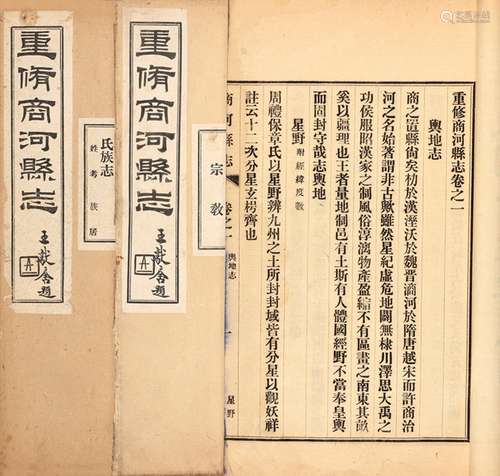 重修商河縣志卷之一
輿地志
商之置縣尚矣朸於漢溼沃於魏晉滴河於隋唐越宋而許商治
河之名始著謂非古歟雖然星紀虛危地闢無棣川澤思大禹之
功侯服昭漢家之制風俗淳漓物產盈縮不有區畫之南東其畝
奚以疆理也王者量地制邑有土斯有人體國經野不當奉皇輿
而固封守哉志輿地
星野 附經緯度數
周禮保章氏以星野辨九州之土所封封域皆有分星以觀妖祥
註云十二次分星玄枵齊也
商河縣志 卷之一 輿地志 一 星野
宗教
重脩商河縣志
題
A
氏族志
姓考 族居
重脩商河縣志
題
A